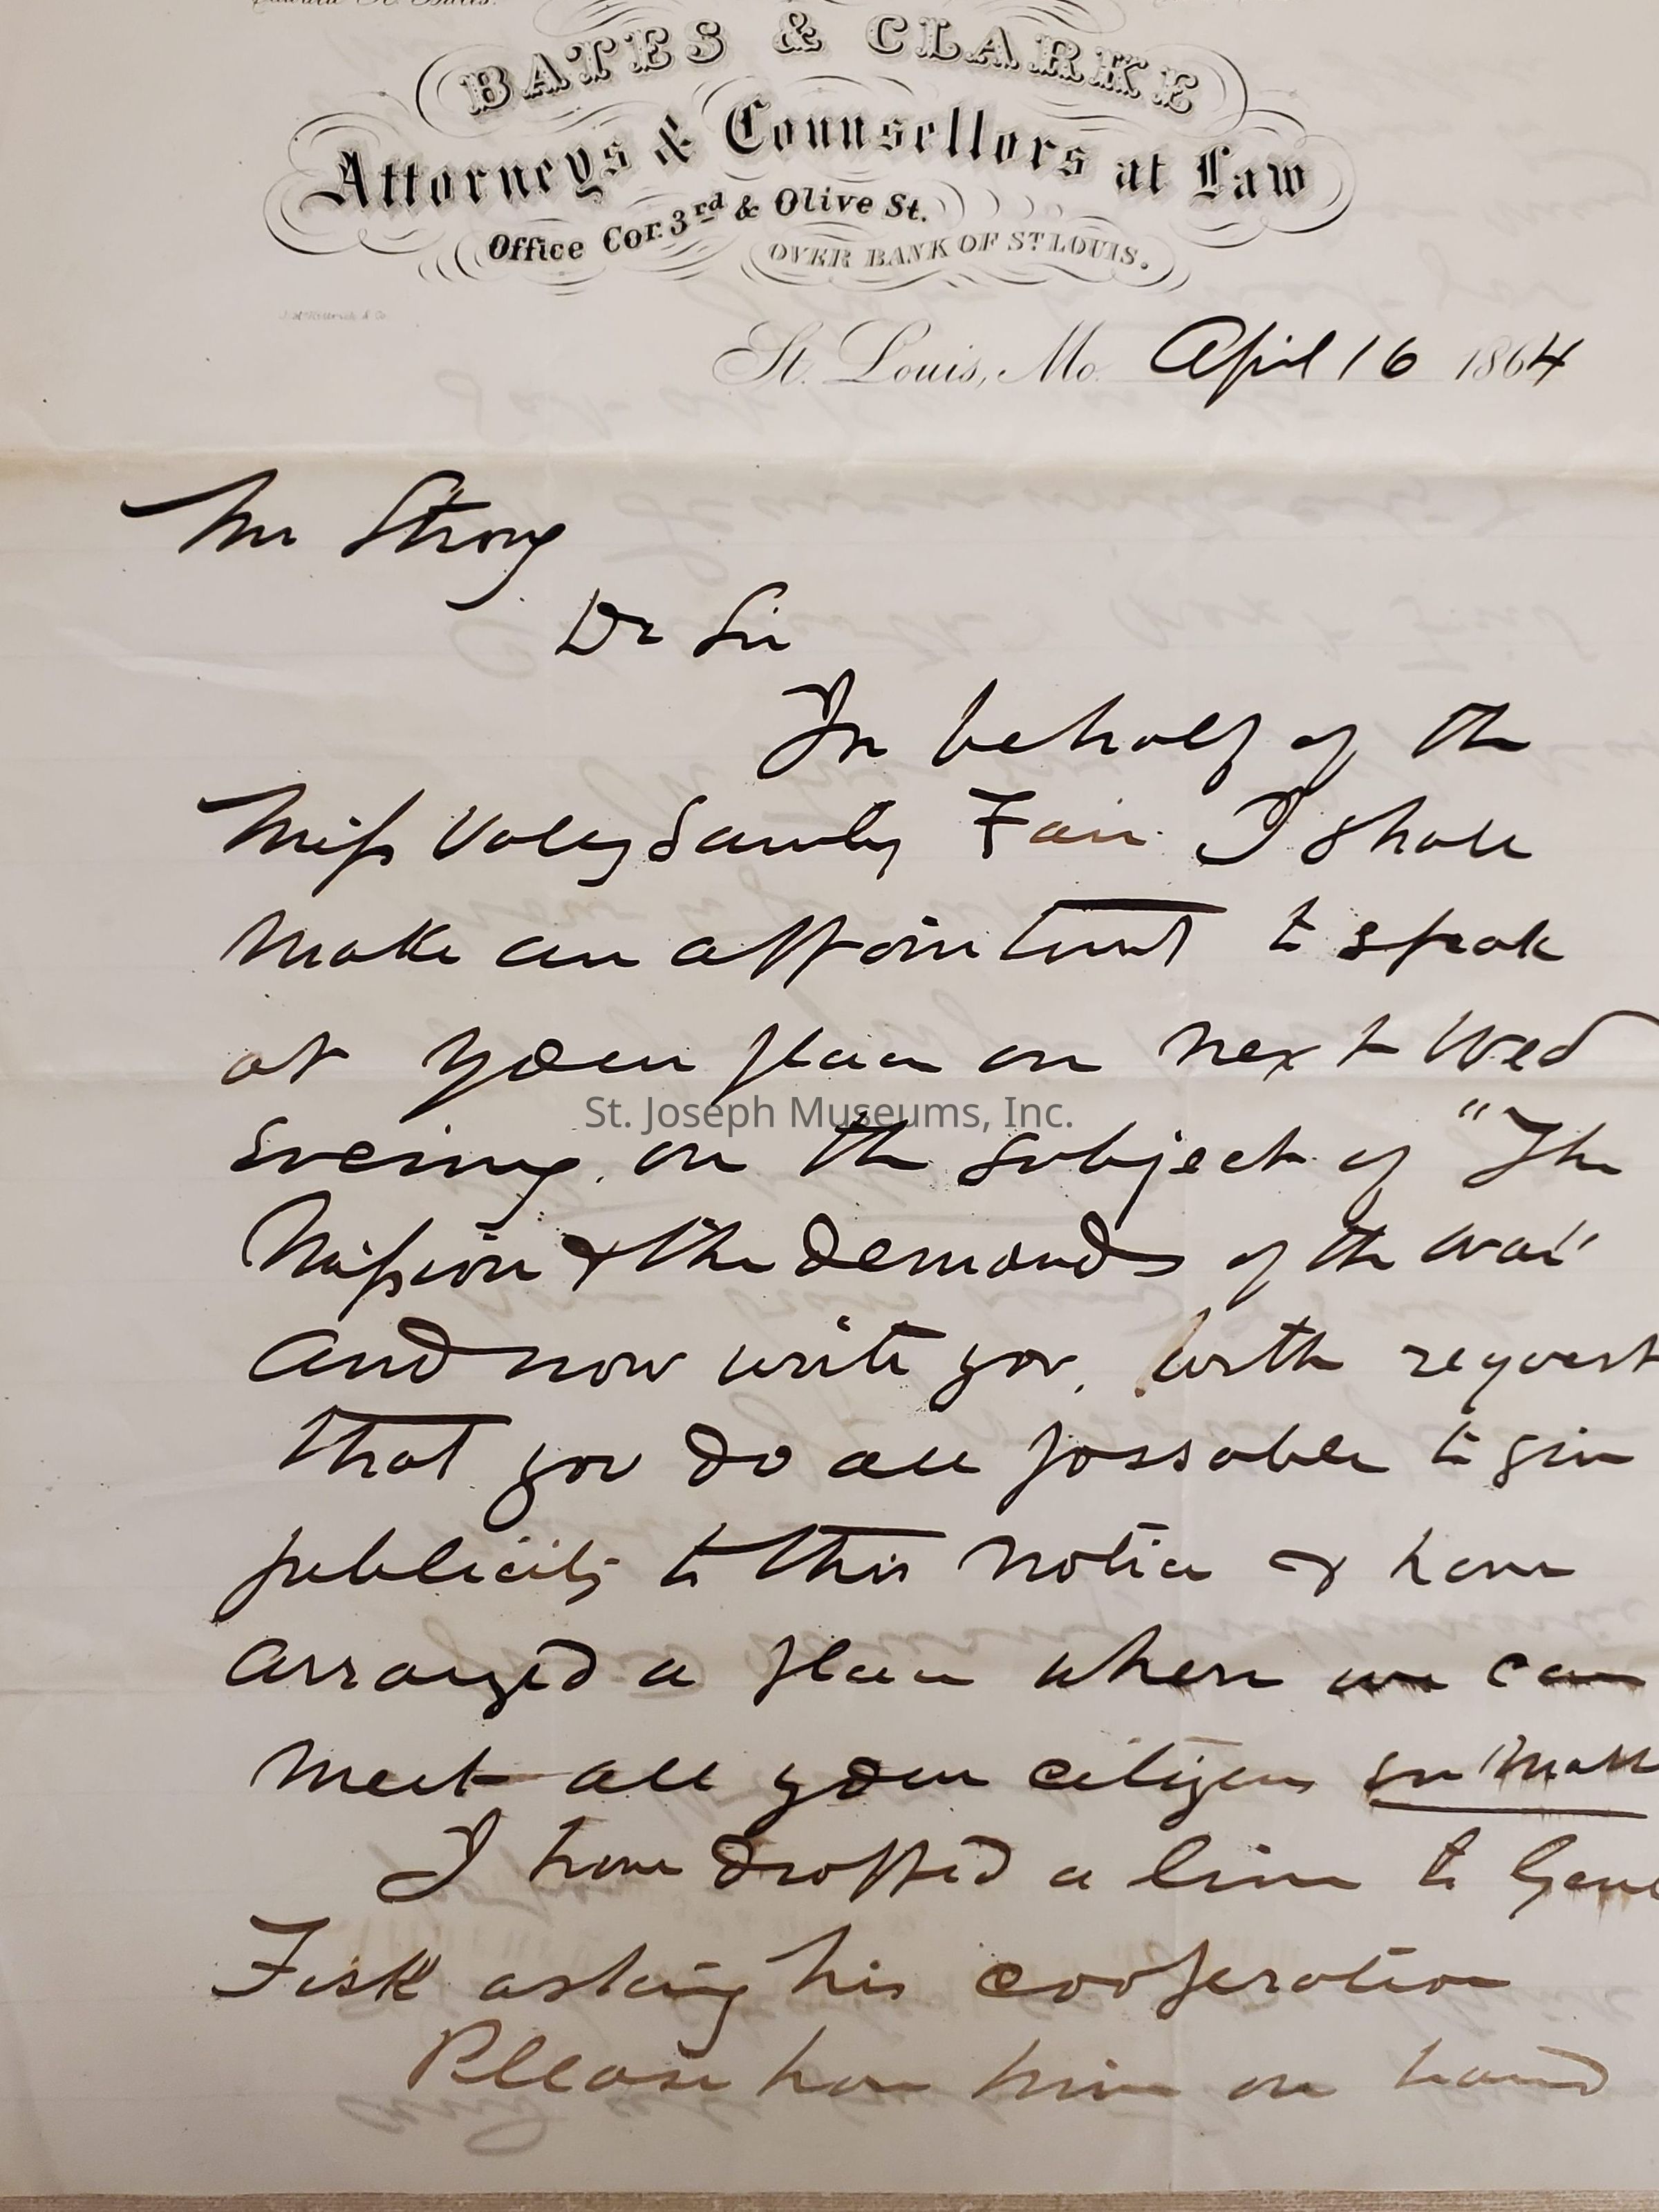 BATES & CLARKE
Attorneys & Counsellors at Law
Office Cor. 3rd & Olive St.
OVER BANK OF ST LOUIS.
St. Louis, Mo. April 16 1864
Mr Strong
Dr Sir
In behalf of the
Miss Valey Sanity Fair I shall
make an appointment to speak
at your place on next Wed
Evening, on the subject of "The
Mission & the demands of the War"
and now write you, with request
that you do all possable to give
publicity to this notice & have
arranged a place where we can
meet all your citizens en "mass
I have dropped a line to Genl
Fisk asking his cooperation
Please have him on hand
St. Joseph Museums, Inc.